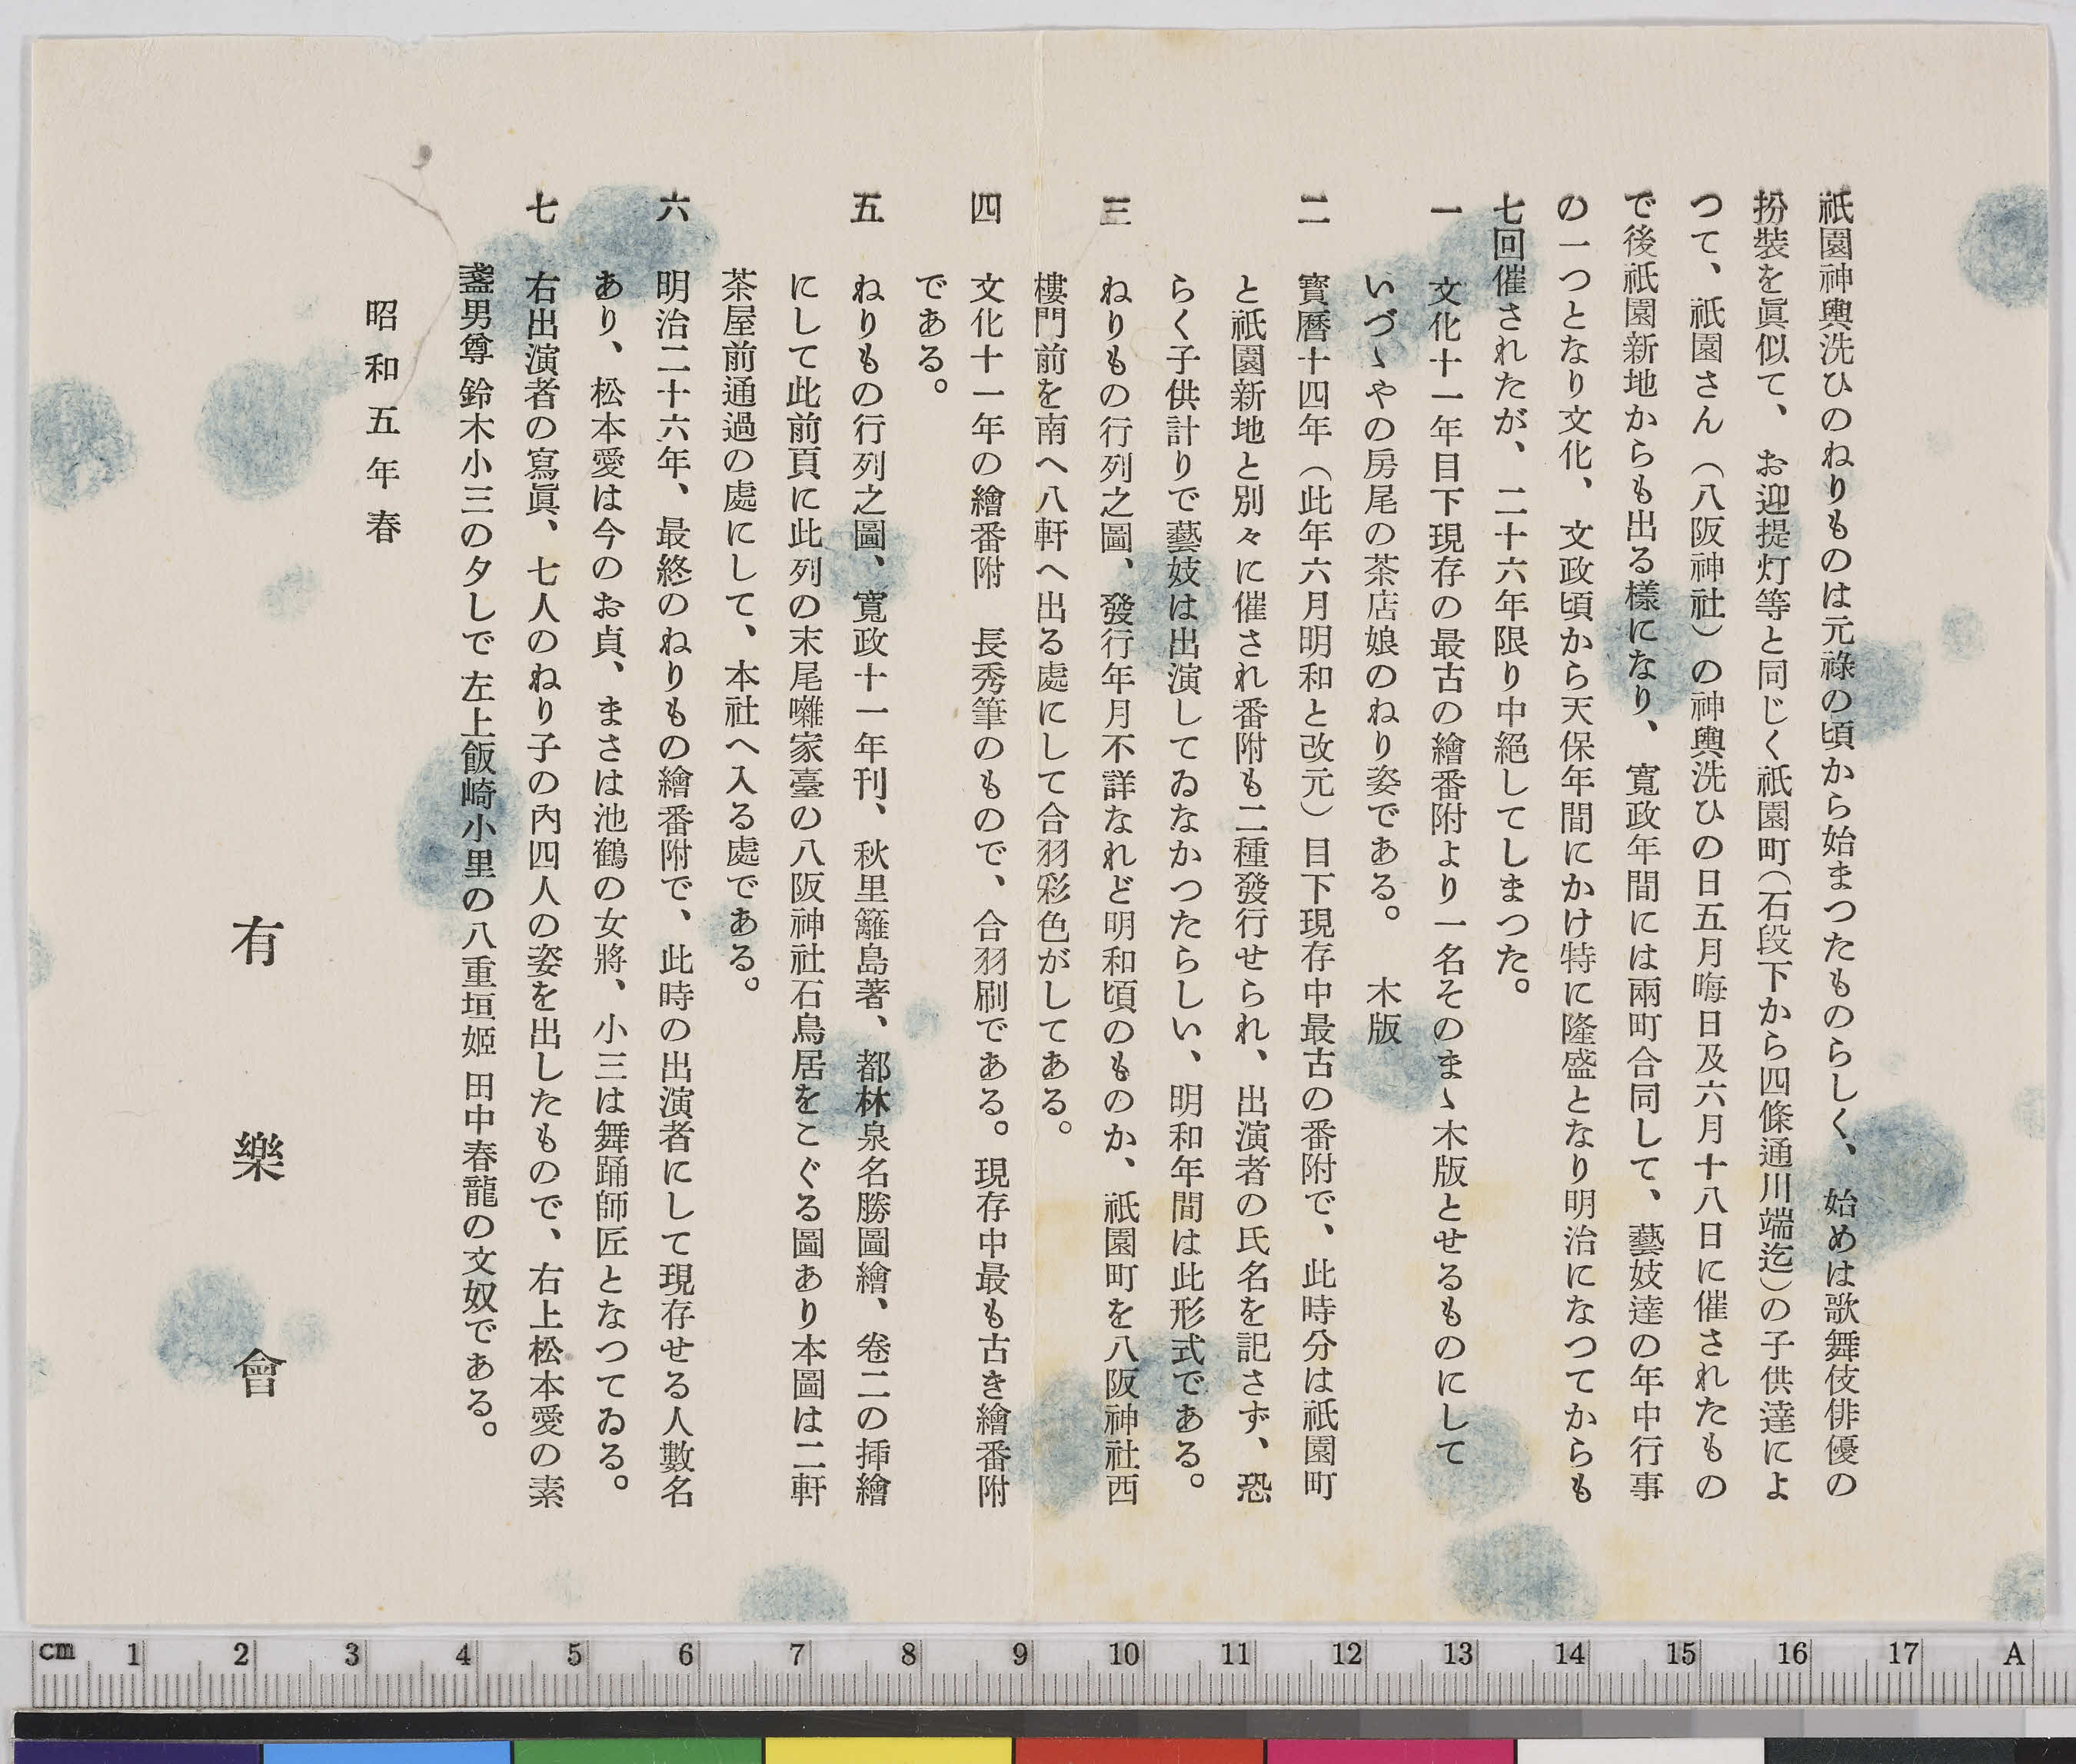 祇園神輿洗ひのねりものは元祿の頃から始まつたものらしく、始めは歌舞伎俳優の
扮裝を眞似て、お迎提灯等と同じく祇園町（石段下から四條通川端迄）の子供達によ
つて、祇園さん（八阪神社）の神輿洗ひの日五月晦日及六月十八日に催されたもの
で後祇園新地からも出る樣になり、寬政年間には兩町合同して、藝妓達の年中行事
の一つとなり文化、文政頃から天保年間にかけ特に隆盛となり明治になつてからも
七回催されたが、二十六年限り中絕してしまつた。
一　文化十一年目下現存の最古の繪番附より一名そのまゝ木版とせるものにして
いづゝやの房尾の茶店娘のねり姿である。　木版
二　寶曆十四年（此年六月明和と改元）目下現存中最古の番附で、此時分は祇園町
と祇園新地と別々に催され番附も二種發行せられ、出演者の氏名を記さず、恐
らく子供計りで藝妓は出演してゐなかつたらしい、明和年間は此形式である。
三　ねりもの行列之圖、發行年月不詳なれど明和頃のものか、祇園町を八阪神社西
樓門前を南へ八軒へ出る處にして合羽彩色がしてある。
四　文化十一年の繪番附　長秀筆のもので、合羽刷である。現存中最も古き繪番附
である。
五　ねりもの行列之圖、寬政十一年刊、秋里籬島著、都林泉名勝圖繪、卷二の揷繪
にして此前頁に此列の末尾囃家臺の八阪神社石鳥居をこぐる圖あり本圖は二軒
茶屋前通過の處にして、本社へ入る處である。
六　明治二十六年、最終のねりもの繪番附で、此時の出演者にして現存せる人數名
あり、松本愛は今のお貞、まさは池鶴の女將、小三は舞踊師匠となつてゐる。
七　右出演者の寫眞、七人のねり子の內四人の姿を出したもので、右上松本愛の素
盞男尊 鈴木小三の夕しで 左上飯崎小里の八重垣姬 田中春龍の文奴である。
昭和五年春
有樂會
cm 1 2 3 4 5 6 7 8 9 10 11 12 13 14 15 16 17 A